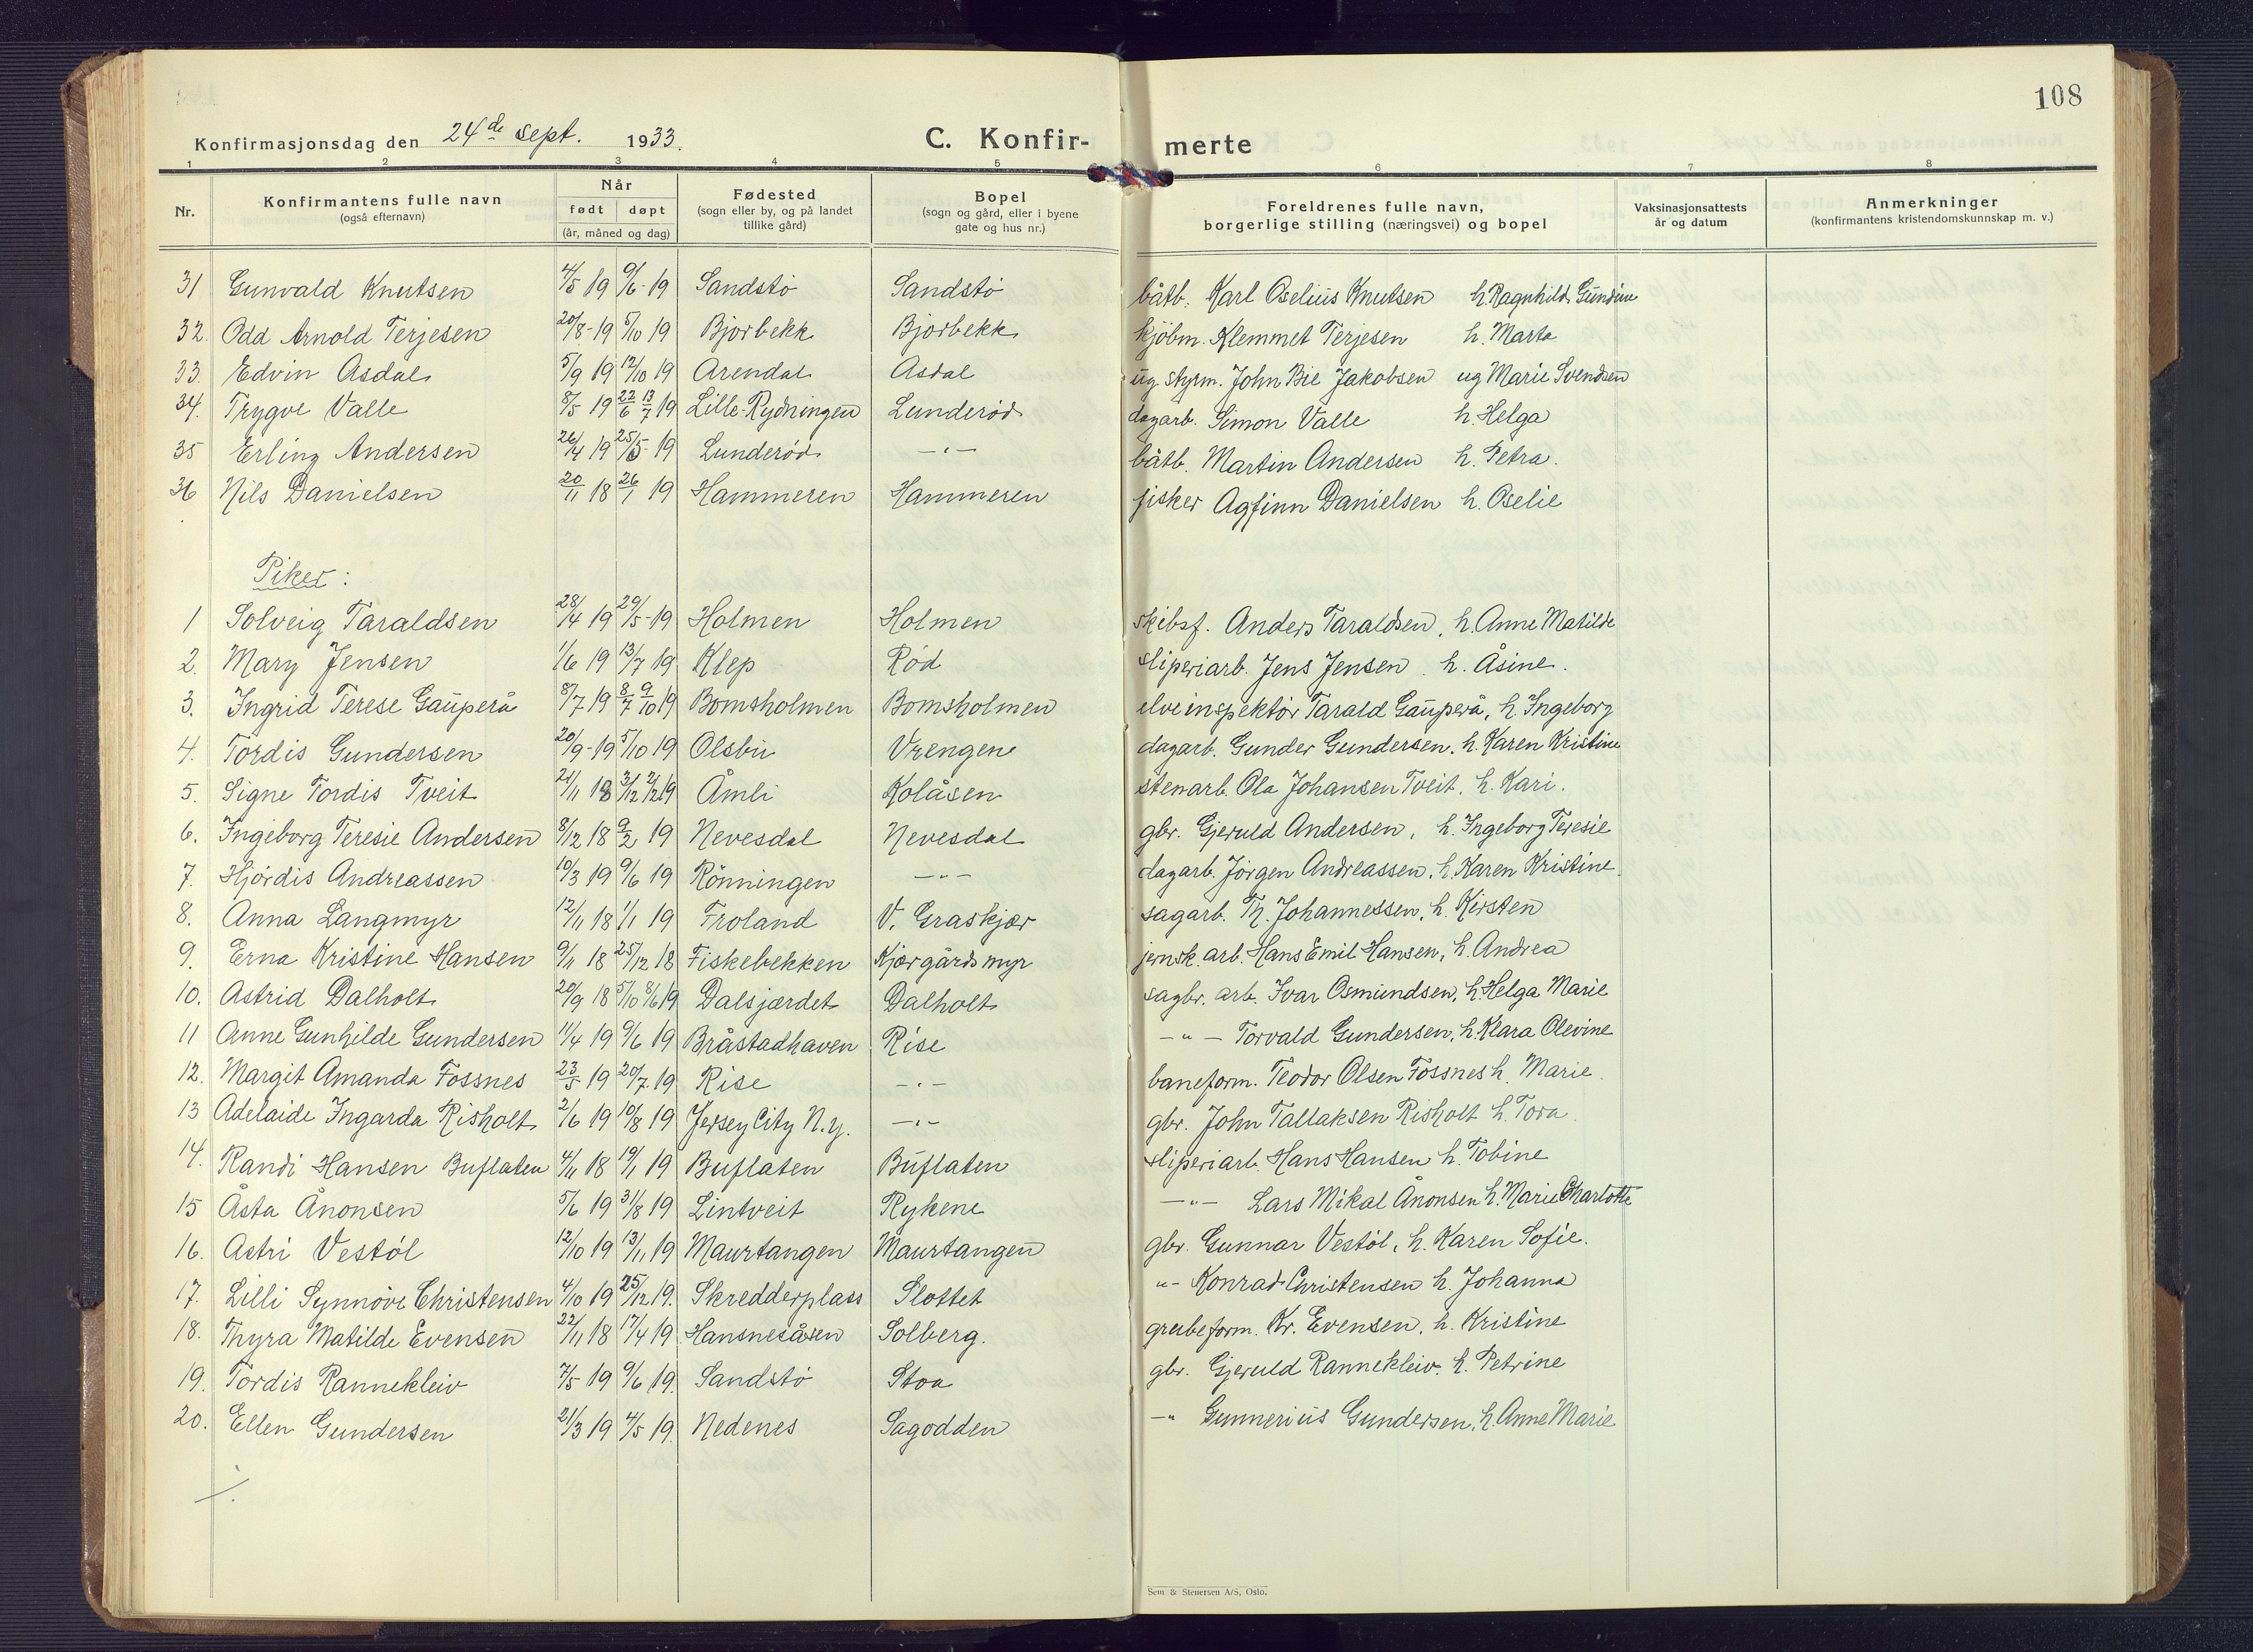 108
Konfirmasjonsdag den 24de sept. 1933.
C. Konfir-merte
1 2 3 4 5 6 7 8
Nr.
Konfirmantens fulle navn
(også efternavn)
Når
født døpt
(år, måned og dag)
Fødested
(sogn eller by, og på landet
tillike gård)
Bopel
(sogn og gård, eller i byene
gate og hus nr.)
Foreldrenes fulle navn,
borgerlige stilling (næringsvei) og bopel
Vaksinasjonsattests
år og datum
Anmerkninger
(konfirmantens kristendomskunnskap m. v.)
31 Gunvald Knutsen 4/5 19 9/6-19 Sandstö Sandstö båtb. Karl Oselius Knutsen h. Ragnhild Gundine
32. Odd Arnold Terjesen 20/8-19 5/10 19 Bjorbekk Bjorbekk kjöbm. Klemmet Terjesen h. Marta
33. Edvin Asdal 5/9 19 12/10 19 Arendal Asdal ug styrm. John Bie Jakobsen ug Marie Svendsen
34. Trygve Valle 8/5 19 22/6 13/7 19 Lille-Rydningen Lunderöd dagarb. Simon Valle h. Helga
35 Erling Andersen 26/4 19 25/5 19 Lunderöd —"— båtb. Martin Andersen h. Petra.
36 Nils Danielsen 20/11 18 26/1 19 Hammeren Hammeren fisker Agfinn Danielsen h. Oselie
Piker:
1 Solveig Taraldsen 28/4 19 29/5-19 Holmen Holmen skibsf. Anders Taraldsen, h. Anne Matilde
2. Mary Jensen 1/6 19 13/7 19 Klep Röd sliperiarb. Jens Jensen h. Åsine.
3. Ingrid Terese Gauperå 8/7 19 8/7 9/10 19 Bomsholmen Bomsholmen elveinspektör Tarald Gauperå, h Ingeborg
4. Tordis Gundersen 20/9-19 5/10 19 Olsbu Vrengen dagarb. Gunder Gundersen, h. Karen Kristine
5. Signe Tordis Tveit 21/11 18 3/12 2/2 19 Åmli Kolåsen stenarb. Ola Johansen Tveit, h. Kari.
6. Ingeborg Teresie Andersen 8/12 18 9/2 19 Nevesdal Nevesdal gbr. Gjeruld Andersen, h. Ingeborg Teresie
7. Hjördis Andreassen 10/3 19 9/6 19 Rönningen —"— dagarb. Jörgen Andreassen, h. Karen Kristine.
8. Anna Langmyr 12/11 18 1/1 19 Froland V. Graskjær sagarb. Th. Johannessen, h. Kirsten
9. Erna Kristine Hansen 9/11 18 25/12 18 Fiskebekken Kjørgårdsmyr jernsk. arb. Hans Emil Hansen, h. Andrea
10. Astrid Dalholt 20/9 18 5/10 8/6 19 Dalsjærdet Dalholt sagbr. arb. Ivar Osmundsen, h. Helga Marie
11 Anne Gunhilde Gundersen 11/4 19 9/6 19 Bråstadhaven Rise —"— Torvald Gundersen, h. Klara Olevine
12. Margit Amanda Fossnes 23/5 19 20/7 19 Rise —"— baneform. Teodor Olsen Fossnes h. Marie.
13 Adelaide Ingarda Risholt 2/6 19 10/8 19 Jersey City N.y. —"— gbr. John Tallaksen Risholt h. Tora.
14. Randi Hansen Buflaten 4/11 18 19/1 19 Buflaten Buflaten sliperiarb. Hans Hansen h. Tobine
15 Åsta Ånonsen 5/6 19 31/8 19 Lintveit Rykene —"— Lars Mikal Ånonsen h. Marie Charlotte
16. Astri Vestöl 12/10 19 13/11 19 Maurtangen Maurtangen gbr. Gunnar Vestöl, h. Karen Sofie.
17. Lilli Synnöve Christensen 4/10 19 25/12 19. Skredderplass Slottet "- Konrad Christensen h. Johanna
18. Thyra Matilde Evensen 22/11 18 17/4 19 Hansnesåsen Solberg. grubeform. Kr. Evensen, h. Kristine
19. Tordis Rannekleiv 7/5 19 9/6 19. Sandstö Stoa gbr. Gjeruld Rannekleiv. h. Petrine
20. Ellen Gundersen 21/3 19 4/5 19. Nedenes Sagodden —" Gunnerius Gundersen, h. Anne Marie
./.
Sem & Stenersen A/S, Oslo.